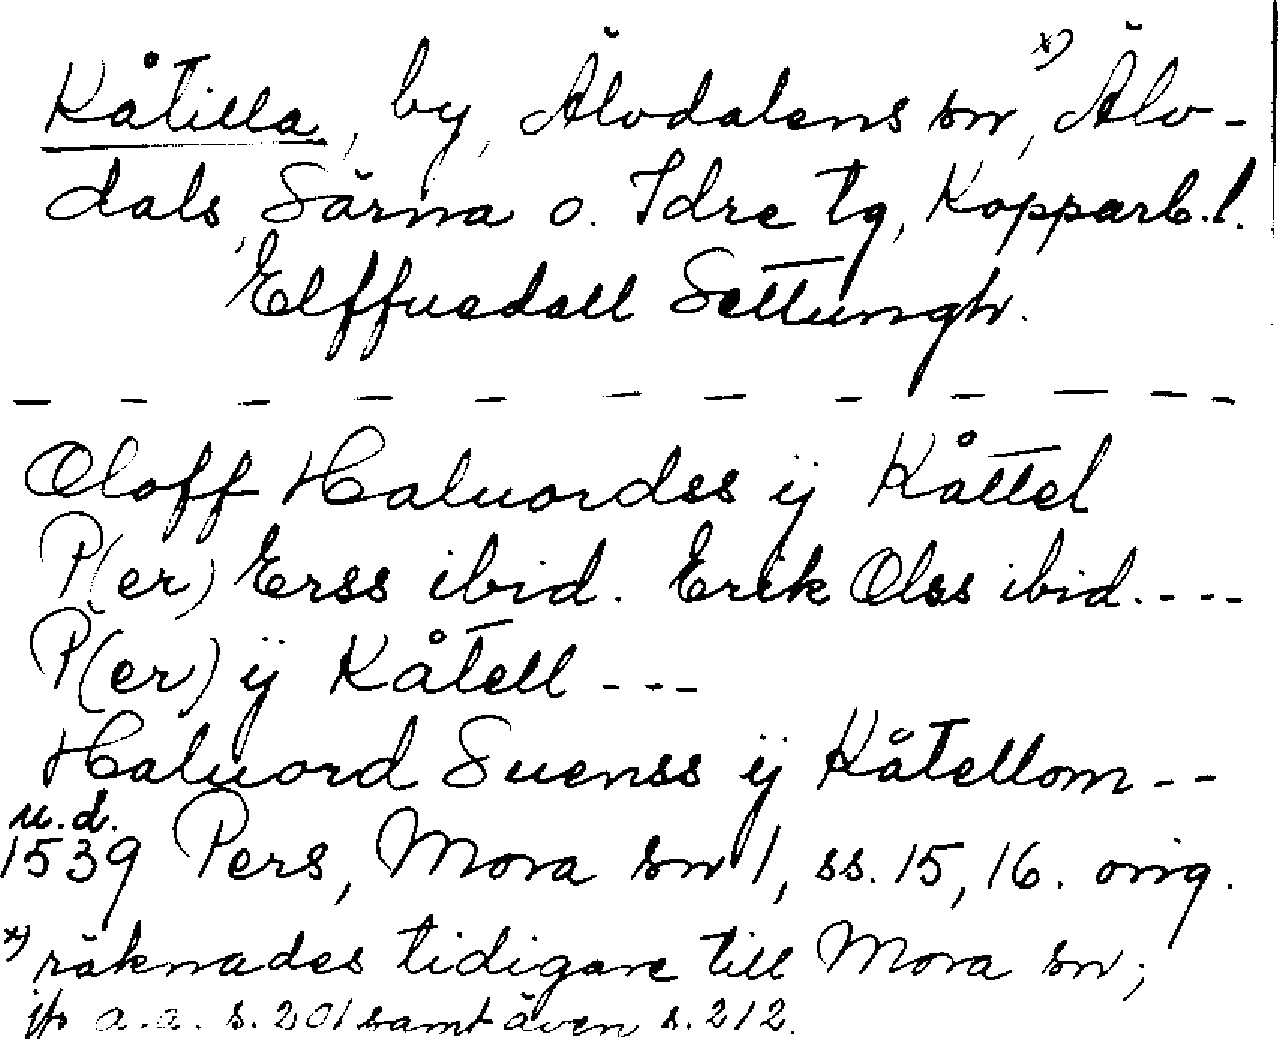 Kåtilla, by, Älvdalens sn,ˣ⁾ Älv-
dals, Särna o. Idre tg, Kopparb.l.
Elffuadall Settungh.
- - - - - - - - - - - -
Oloff Haluordss ij Kåttel
P(er) Erss ibid. Erik Olss ibid. ---
P(er) ij Kåtell ---
Haluord Suenss ij Kåtellom --
u.d.
1539 Pers, Mora sn 1, ss. 15, 16. orig.
ˣ⁾ räknades tidigare till Mora sn;
jfr a.a. s. 201 samt även s. 212.